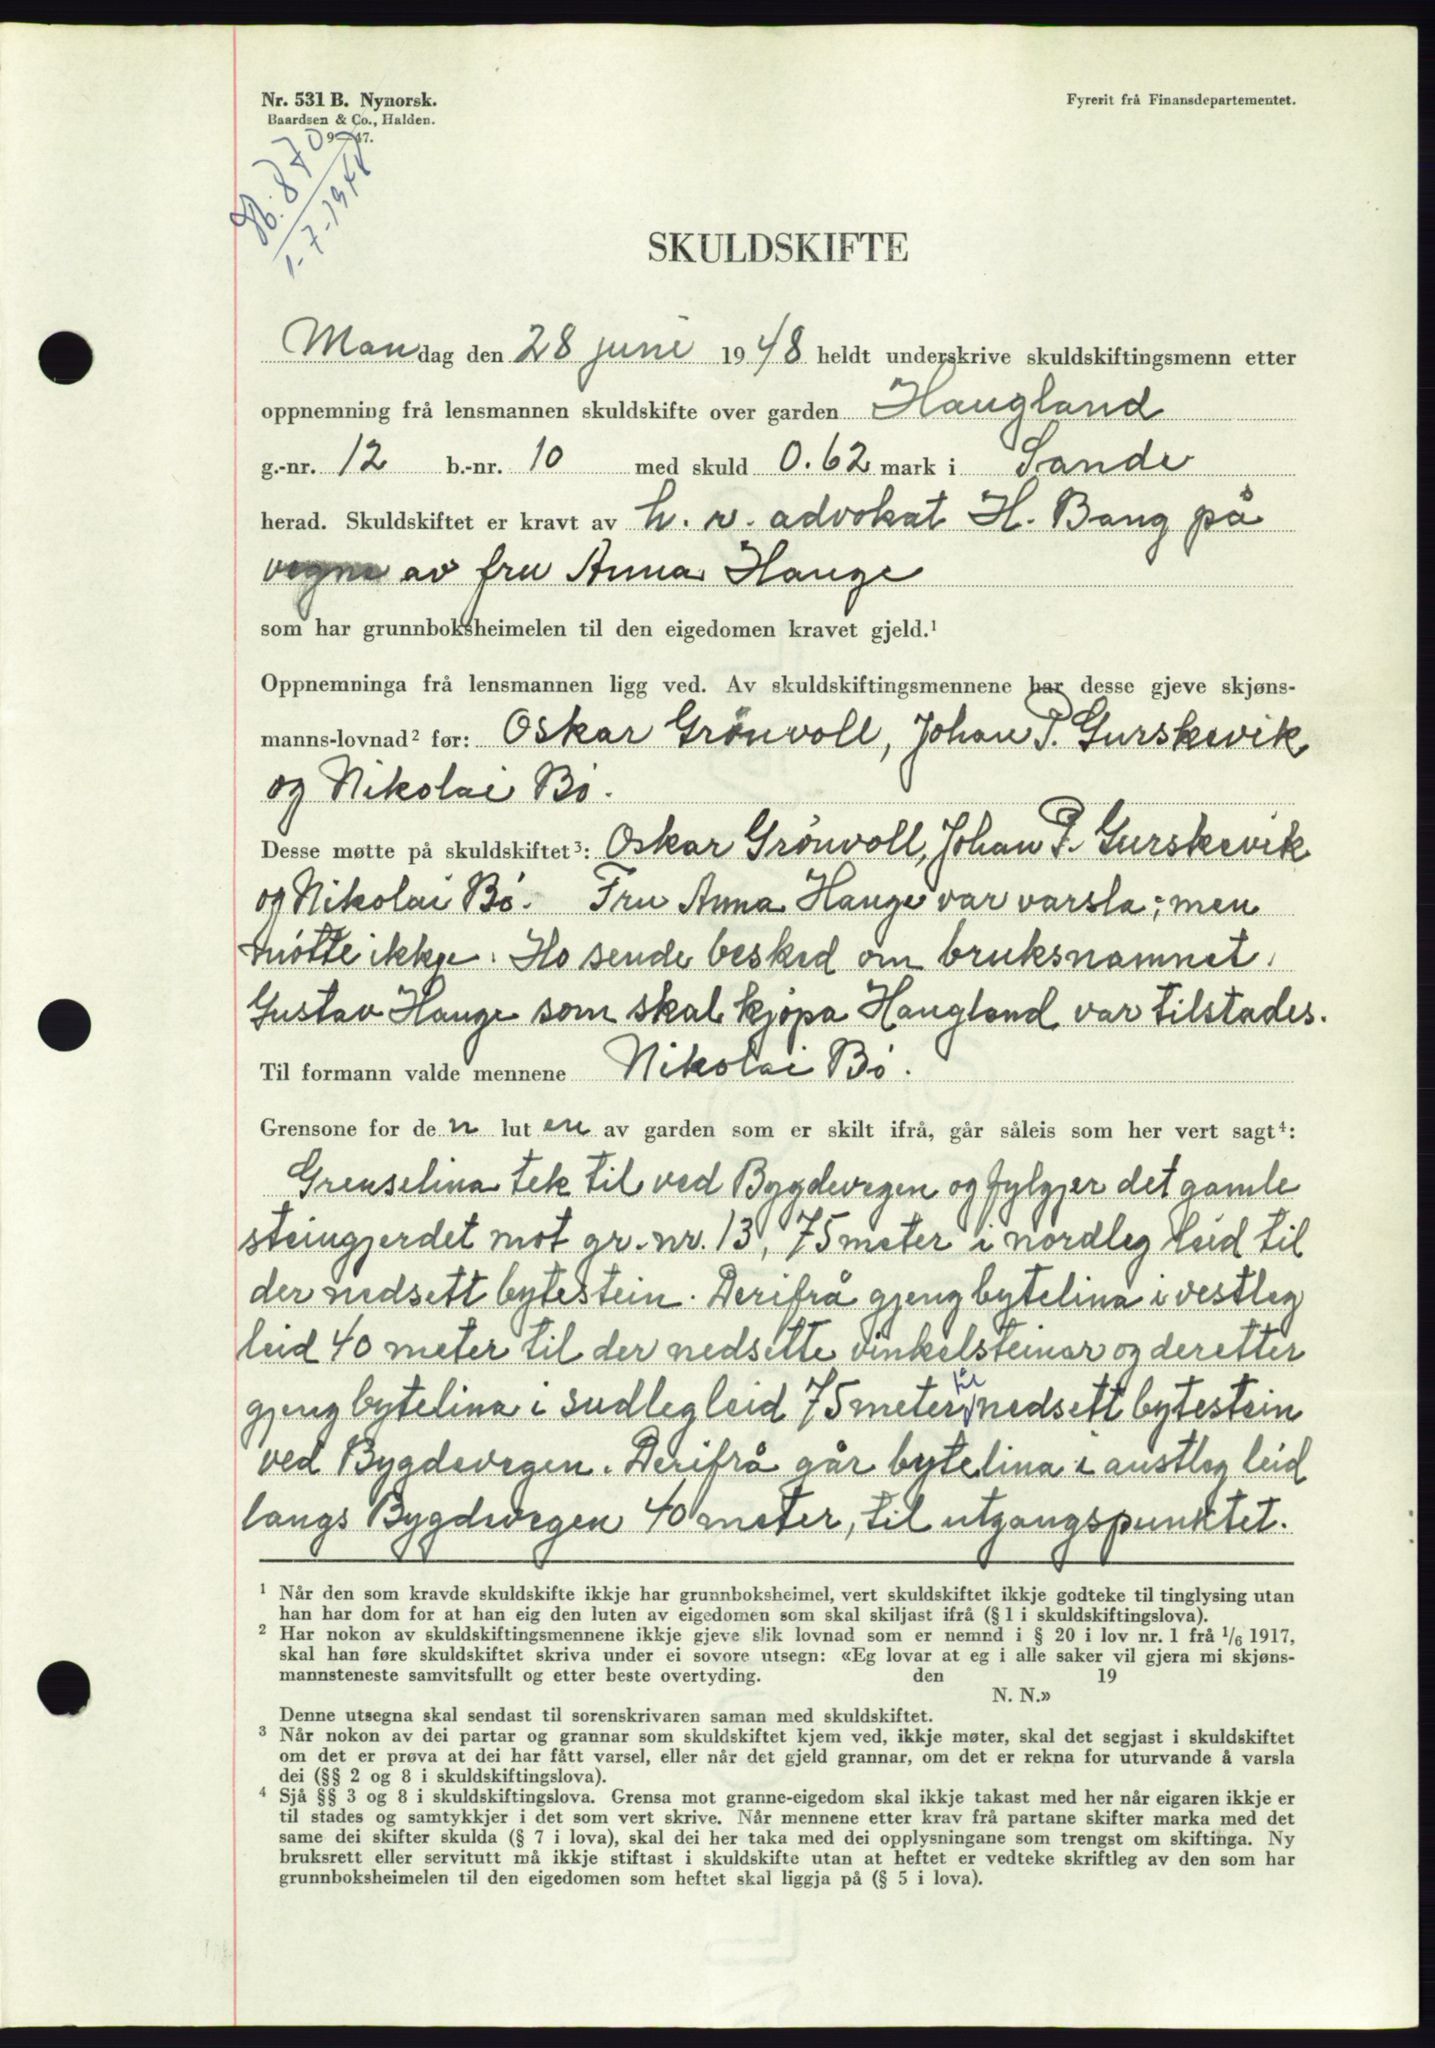 Nr. 531 B. Nynorsk.
Baardsen & Co., Halden.
9—47.
Fyrerit frå Finansdepartementet.
870
1-7-1948
SKULDSKIFTE
Mandag den 28 juni 1948 heldt underskrive skuldskiftingsmenn etter
oppnemning frå lensmannen skuldskifte over garden Haugland
g.-nr. 12 b.-nr. 10 med skuld 0.62 mark i Sande
herad. Skuldskiftet er kravt av h. r. advokat H. Bang på
vegne av fru Anna Hauge
som har grunnboksheimelen til den eigedomen kravet gjeld.¹
Oppnemninga frå lensmannen ligg ved. Av skuldskiftingsmennene har desse gjeve skjøns-
manns-lovnad² før: Oskar Grönvoll, Johan P. Gurskevik
og Nikolai Bö.
Desse møtte på skuldskiftet³: Oskar Grönvoll, Johan P. Gurskevik
og Nikolai Bö. Fru Anna Hauge var varsla; men
mötte ikkje. Ho sende besked om bruksnamnet.
Gustav Hauge som skal kjöpa Haugland var tilstades.
Til formann valde mennene Nikolai Bö.
Grensone for de n lut en av garden som er skilt ifrå, går såleis som her vert sagt⁴:
Grenselina tek til ved Bygdevegen og fylgjer det gamle
steingjerdet mot gr. nr. 13, 75 meter i nordleg leid til
der nedsett bytestein. Derifrå gjeng bytelina i vestleg
leid 40 meter til der nedsette vinkelsteinar og deretter
gjeng bytelina i sudleg leid 75 meter til nedsett bytestein
ved Bygdevegen. Derifrå går bytelina i austleg leid
langs Bygdevegen 40 meter, til utgangspunktet.
¹ Når den som kravde skuldskifte ikkje har grunnboksheimel, vert skuldskiftet ikkje godteke til tinglysing utan
han har dom for at han eig den luten av eigedomen som skal skiljast ifrå (§ 1 i skuldskiftingslova).
² Har nokon av skuldskiftingsmennene ikkje gjeve slik lovnad som er nemnd i § 20 i lov nr. 1 frå 1/6 1917,
skal han føre skuldskiftet skriva under ei sovore utsegn: «Eg lovar at eg i alle saker vil gjera mi skjøns-
mannsteneste samvitsfullt og etter beste overtyding. den 19
N. N.»
Denne utsegna skal sendast til sorenskrivaren saman med skuldskiftet.
³ Når nokon av dei partar og grannar som skuldskiftet kjem ved, ikkje møter, skal det segjast i skuldskiftet
om det er prøva at dei har fått varsel, eller når det gjeld grannar, om det er rekna for uturvande å varsla
dei (§§ 2 og 8 i skuldskiftingslova).
⁴ Sjå §§ 3 og 8 i skuldskiftingslova. Grensa mot granne-eigedom skal ikkje takast med her når eigaren ikkje er
til stades og samtykkjer i det som vert skrive. Når mennene etter krav frå partane skifter marka med det
same dei skifter skulda (§ 7 i lova), skal dei her taka med dei opplysningane som trengst om skiftinga. Ny
bruksrett eller servitutt må ikkje stiftast i skuldskifte utan at heftet er vedteke skriftleg av den som har
grunnboksheimelen til den eigedomen som heftet skal liggja på (§ 5 i lova).